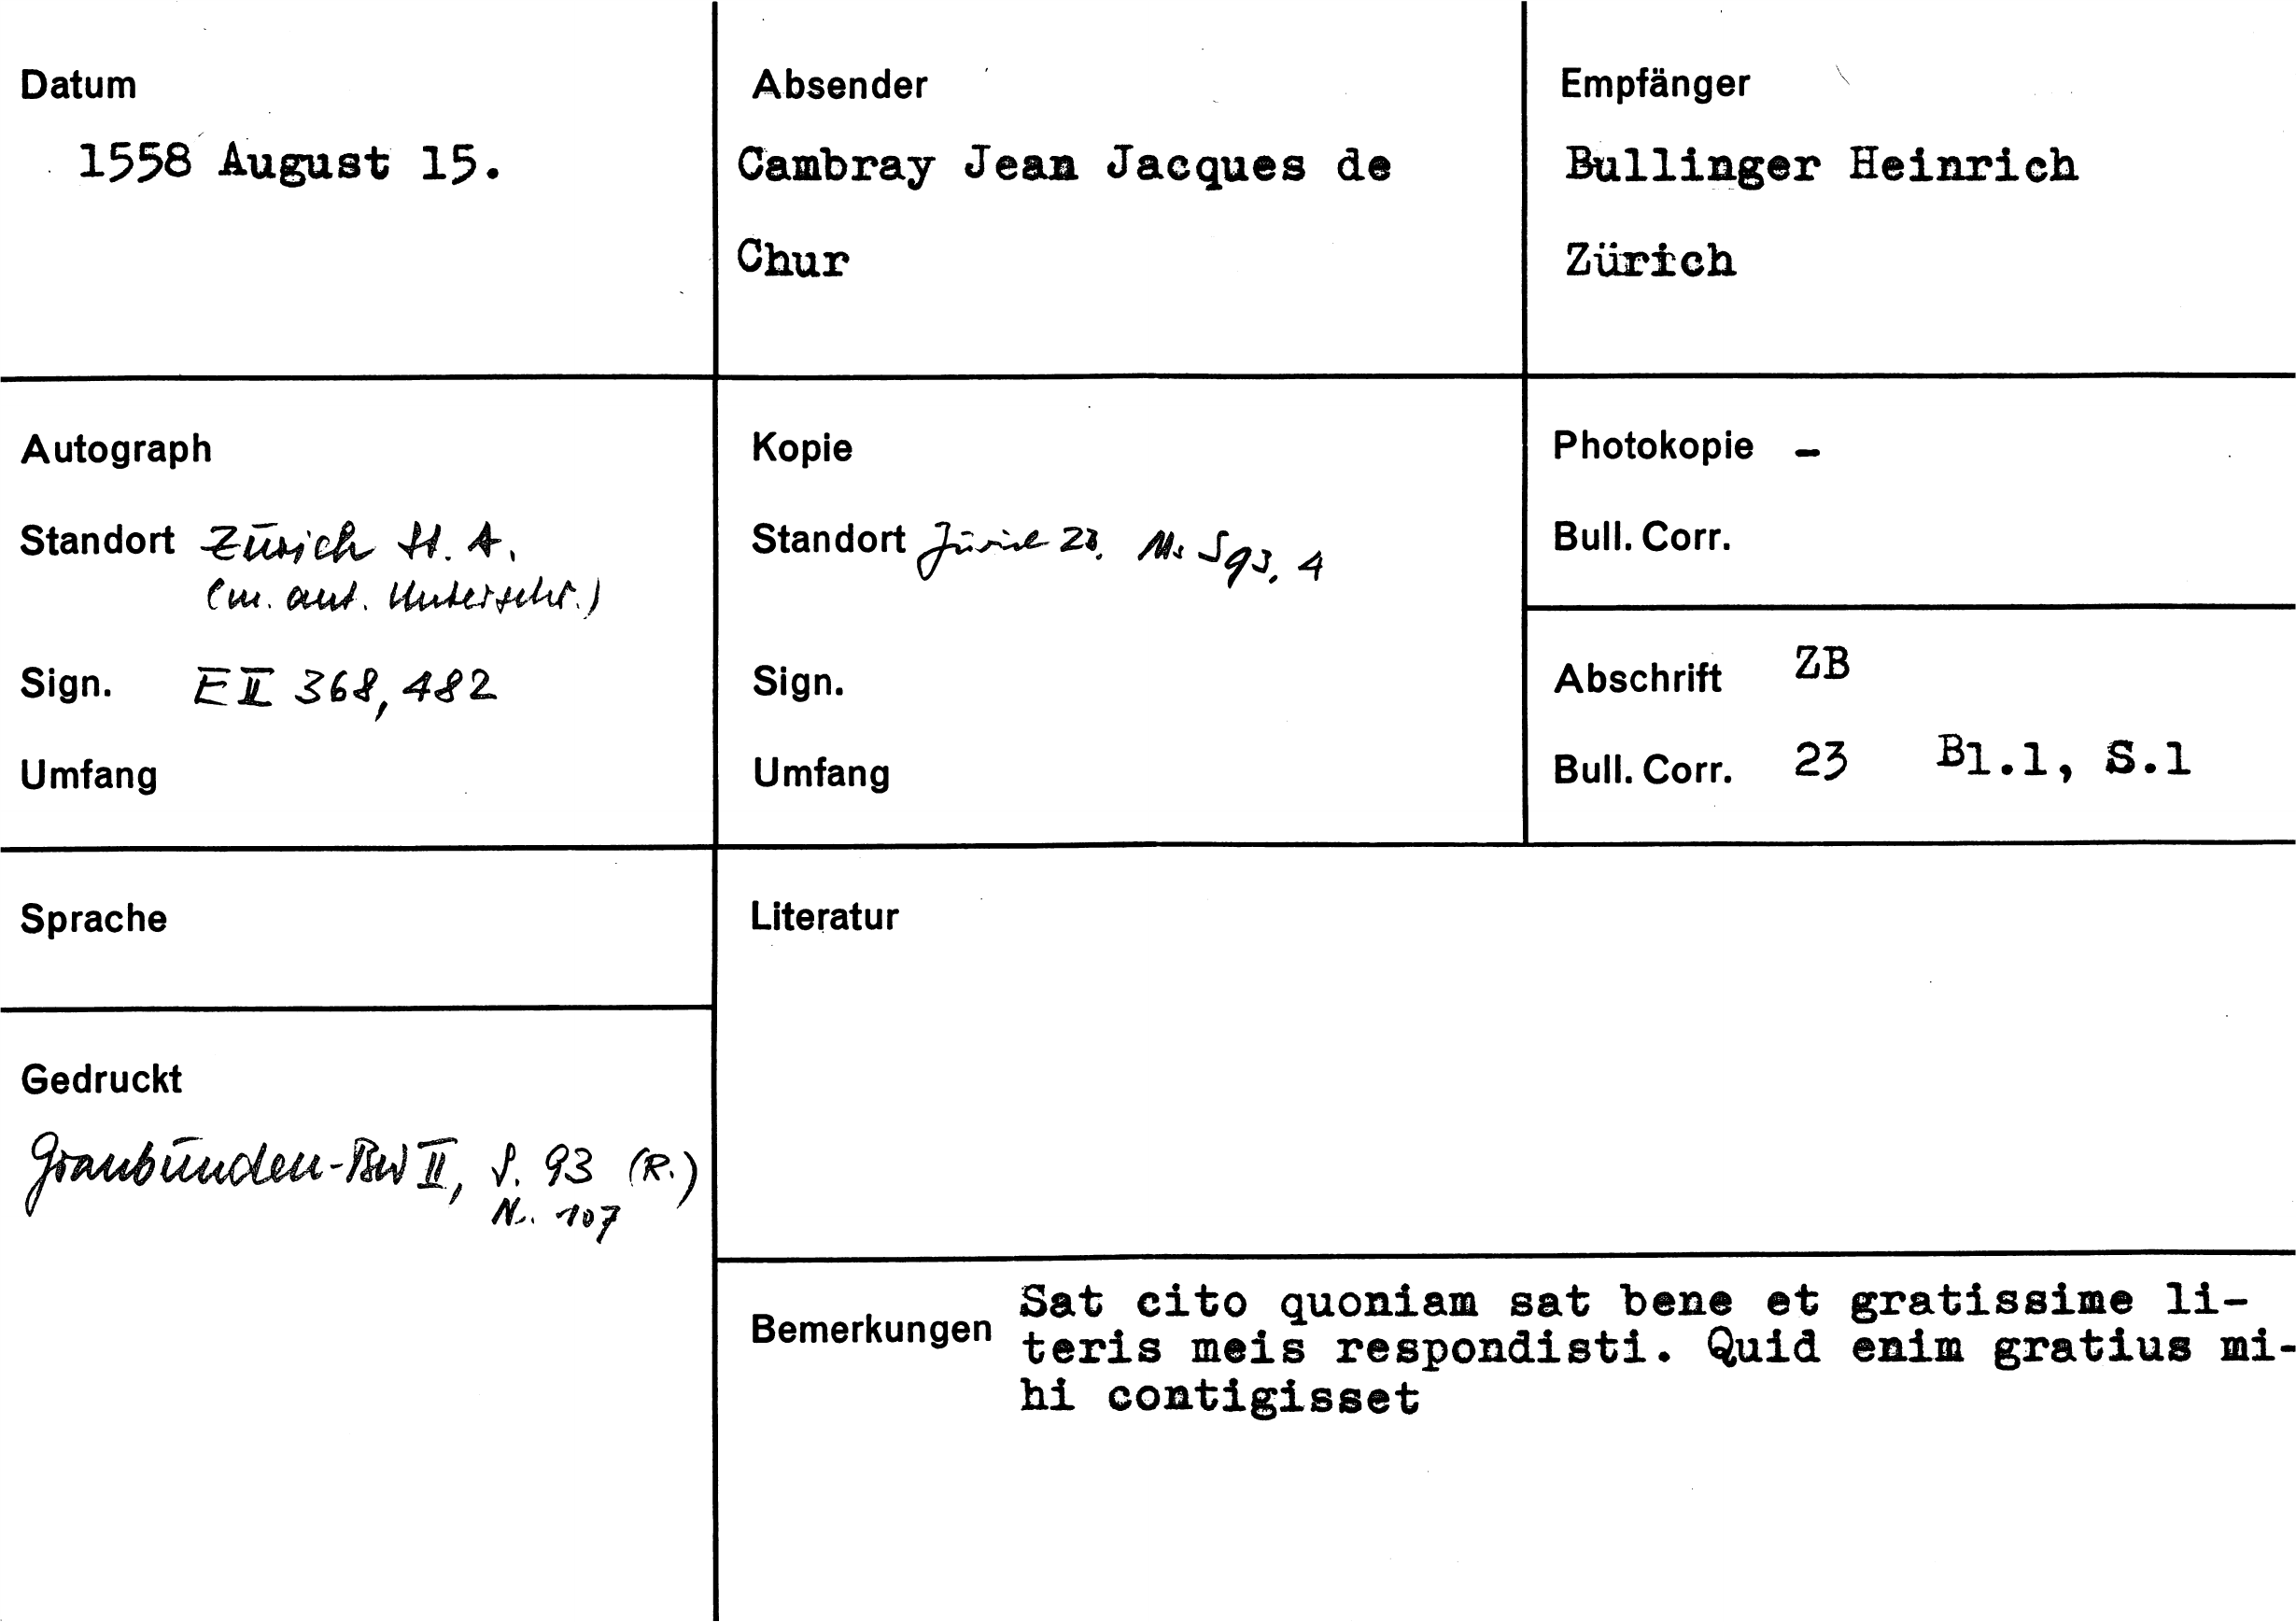 Datum
1558 August 15.
Absender
Cambray Jean Jacques de
Chur
Empfänger
Bullinger Heinrich
Zürich
Autograph
Standort Zürich St. A.
(m. aut. Unterschr.)
Sign. E II 368, 482
Umfang
Kopie
Standort Zürich ZB. Ms S 93, 4
Sign.
Umfang
Photokopie -
Bull. Corr.
Abschrift ZB
Bull. Corr. 23 Bl.1, S.1
Sprache
Gedruckt
Graubünden-BW II, S. 93 (R.)
Nr. 107
Literatur
Bemerkungen
Sat cito quoniam sat bene et gratissime li-
teris meis respondisti. Quid enim gratius mi-
hi contigisset